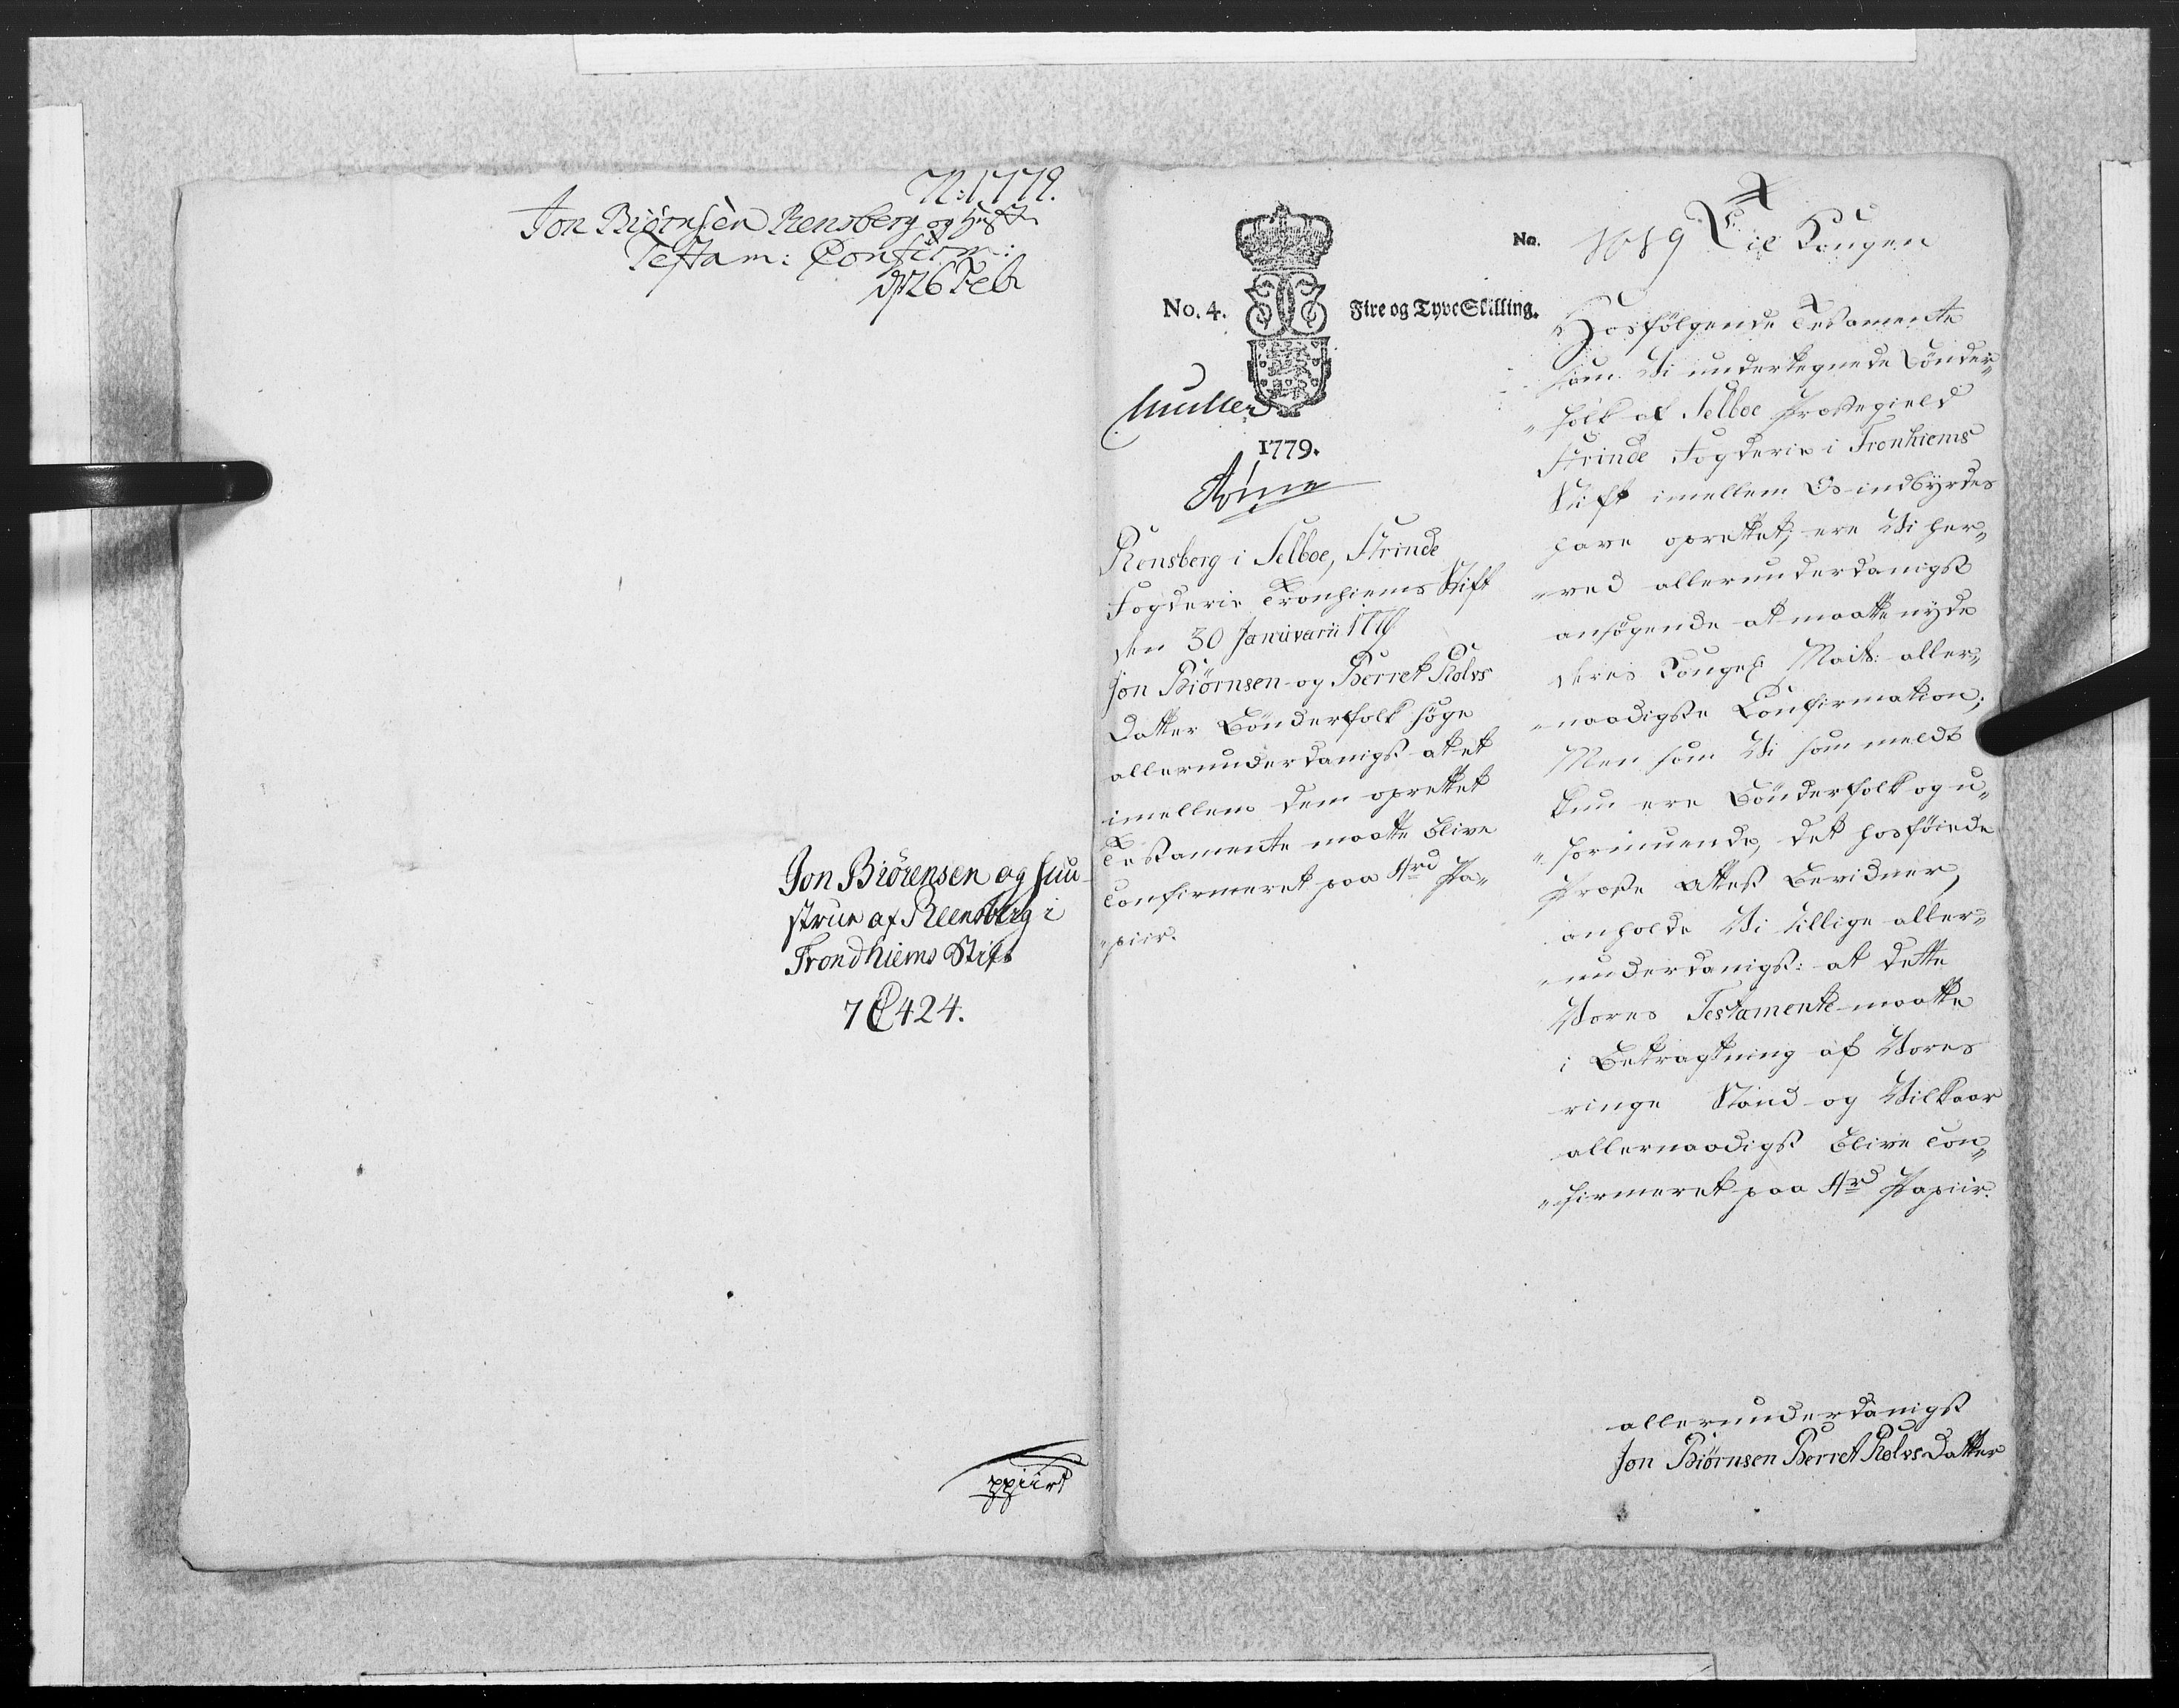 N: 1779.
Jon Biørnsen Rensberg og Hustr
Testam: Confirm:
d 26 Feb
Jon Biørensen og huu-
strue af Reensberg i
Trondhiems Stift
7 C 424.
No. 4.
Fire og Tyve Skilling.
Muller
1779.
Rensberg i Selboe, Strinde
Fogderie Tronhiems Stift
den 30 Januvarii 1779
Jon Biørnsen og Berret Rolvs
Datter Bønderfolk søge
allerunderdanigst at et
imellem dem oprettet
Testamente maatte blive
Confirmeret paa 4rd Pa„
„piir.
No.
1019 Til Kongen
Hosfølgende Testamente
som Vi undertegnede Bønder„
„folk af Selboe Præstegield
Strinde Fogderie i Tronhiems
Stift imellem Os indbyrdes
have oprettet, ere Vi her„
„ved allerunderdanigst
ansøgende at maatte nyde
Deres Kongel: Maits: aller„
„naadigste Confirmation;
Men som Vi som meldt
kun ere Bønderfolk og u„
„formuende, det hosføiede
Præste Attest bevidner,
anholde Vi tillige aller„
„underdanigst: at dette
Vores Testamente maatte
i Betragtning af Vores
ringe Stand og Vilkaar
allernaadigst blive Con„
„firmeret paa 4rd Papiir.
allerunderdanigst
Jon Biørnsen Berret RolvsDatter